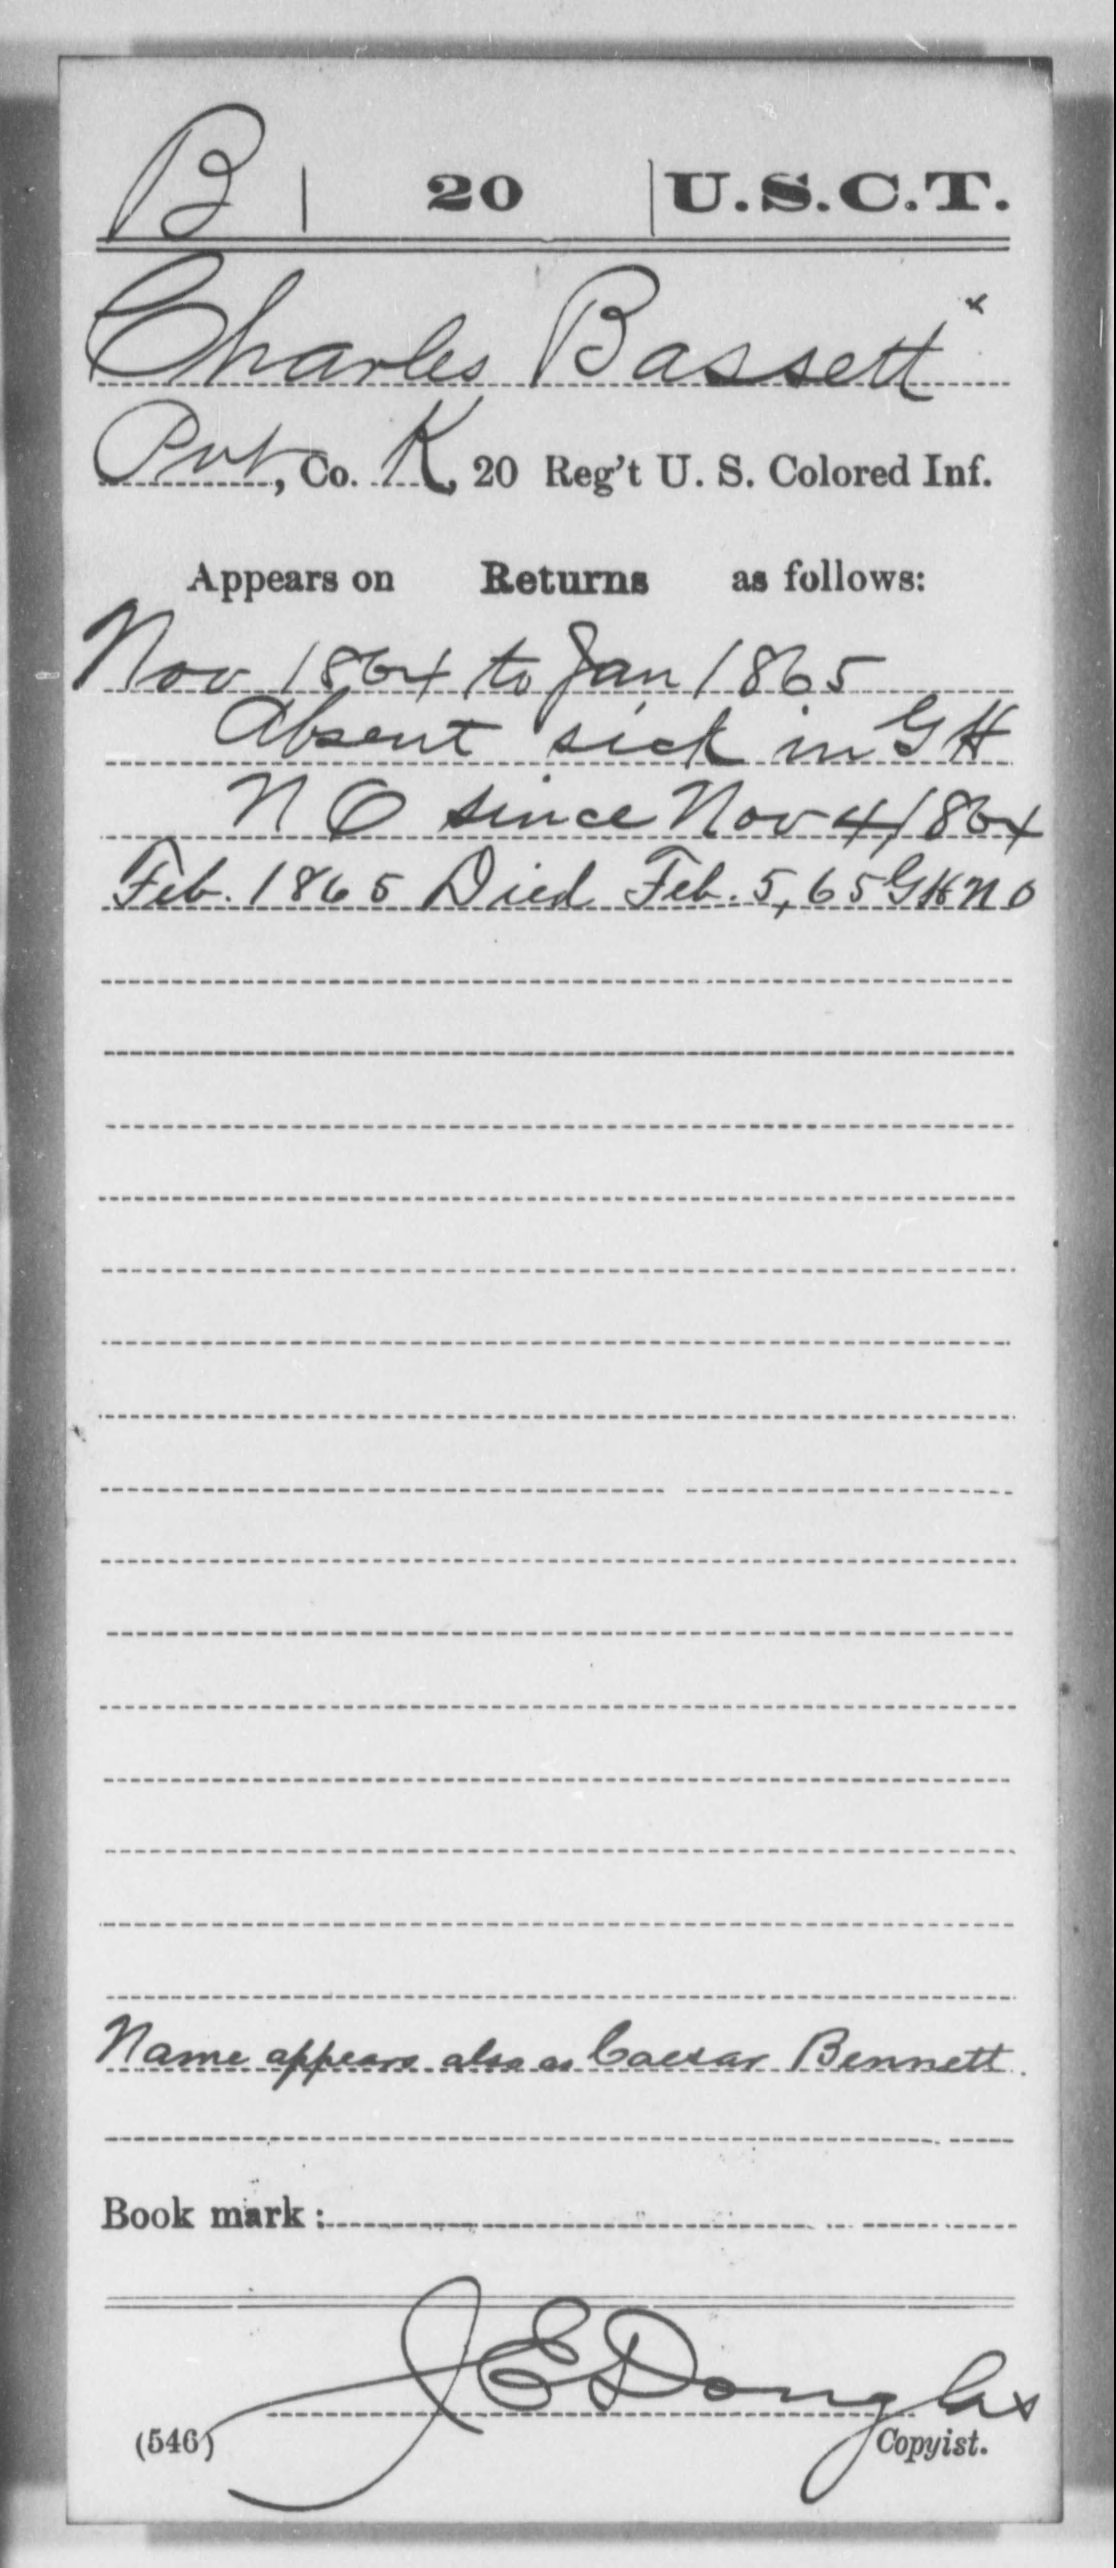 B | 20 | U.S.C.T.
Charles Bassett x
Pvt, Co. K, 20 Reg't U. S. Colored Inf.
Appears on Returns as follows:
Nov 1864 to Jan 1865
Absent sick in G H
N O since Nov 4, 1864
Feb. 1865 Died Feb. 5, 65 G H N O
Name appears also as Caesar Bennett.
Book mark:
J E Douglas
(546) Copyist.